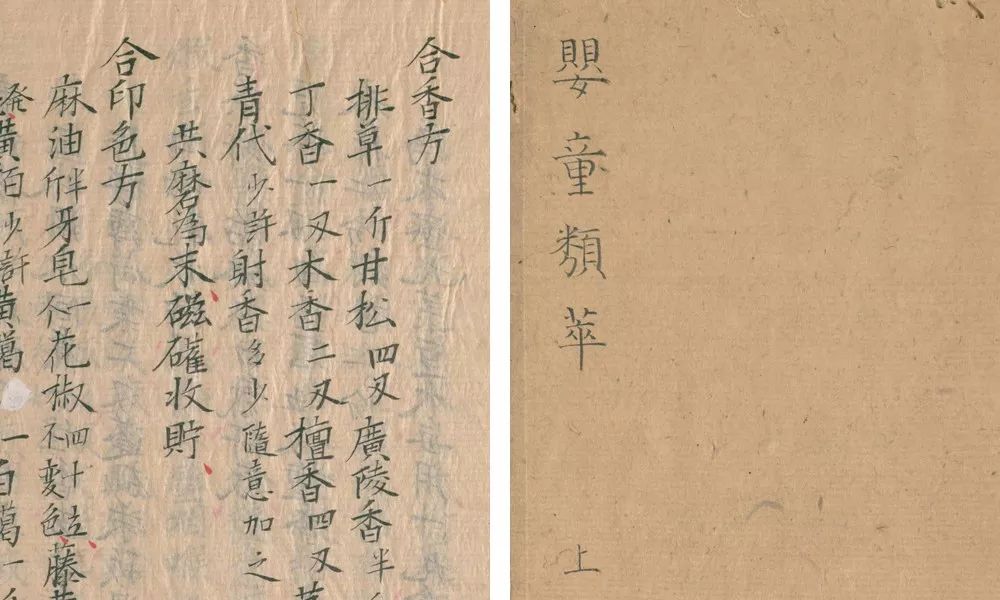 合香方
排草一斤甘松四刄廣陵香半
丁香一刄木香二刄檀香四刄
青代少許射香多少隨意加之
共磨為末磁礶收貯
合印色方
麻油半斤牙皂一个花椒四十粒不變色藤黃
黃佰少許黃蠟一
嬰童類萃
上